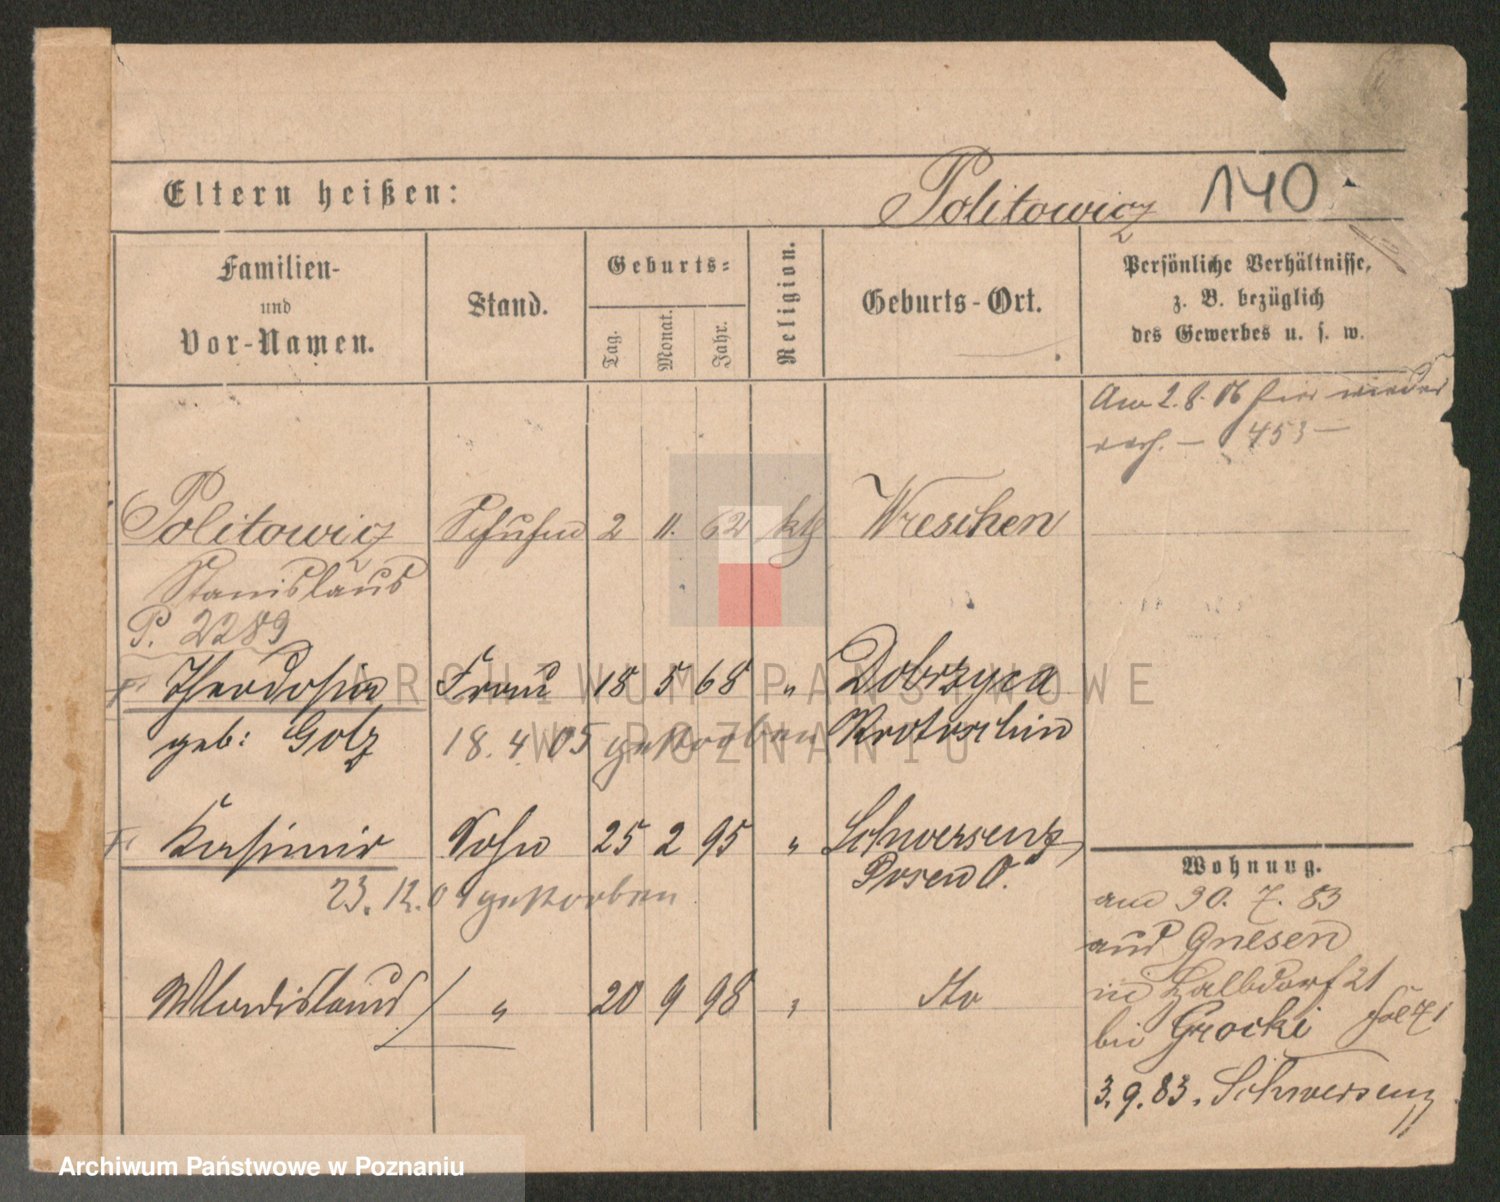 Eltern heißen:
Politowicz 140
Familien-
und
Vor-Namen.
Stand.
Geburts-
Tag.
Monat.
Jahr.
Religion.
Geburts-Ort.
Persönliche Verhältnisse,
z. B. bezüglich
des Gewerbes u. s. w.
Am 2.8.06 hier wieder
453 —
Politowicz 2 11. 62 kth Wreschen
Stanislaus
P. 2289
Theodosia Frau 18 5 68 " Dobrzyca
geb: Golz 18.4.05 gestorben Krotoschin
Kasimir Sohn 25 2 95 " Schwersenz
Posen O.
23.12.04 gestorben
Wladislaus " 20 9 98 " Ito
Wohnung.
am 30. 7. 83
aus Gnesen
in Halbdorf 21
bei Grocki
3.9.83. Schwersenz
ARCHIWUM PAŃSTWOWE
W POZNANIU
Archiwum Państwowe w Poznaniu